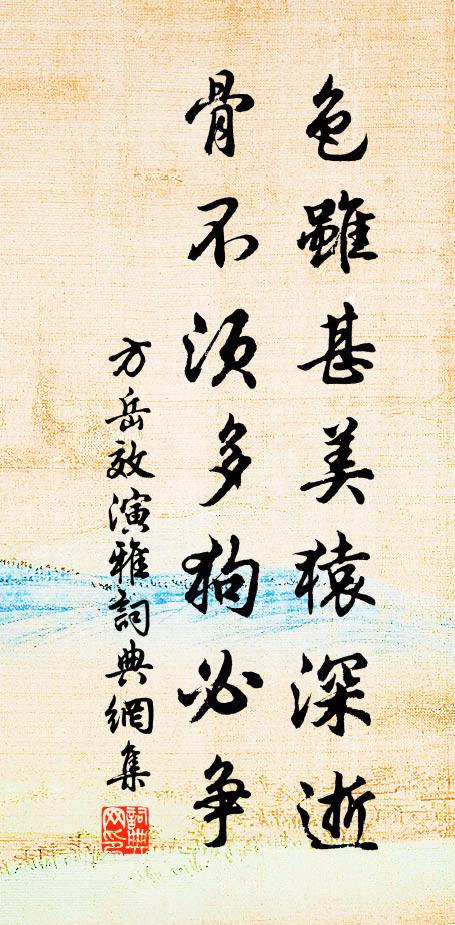 色雖甚美猿深逝
骨不須多狗必爭
方岳效演雅詞典網集
詞典网印